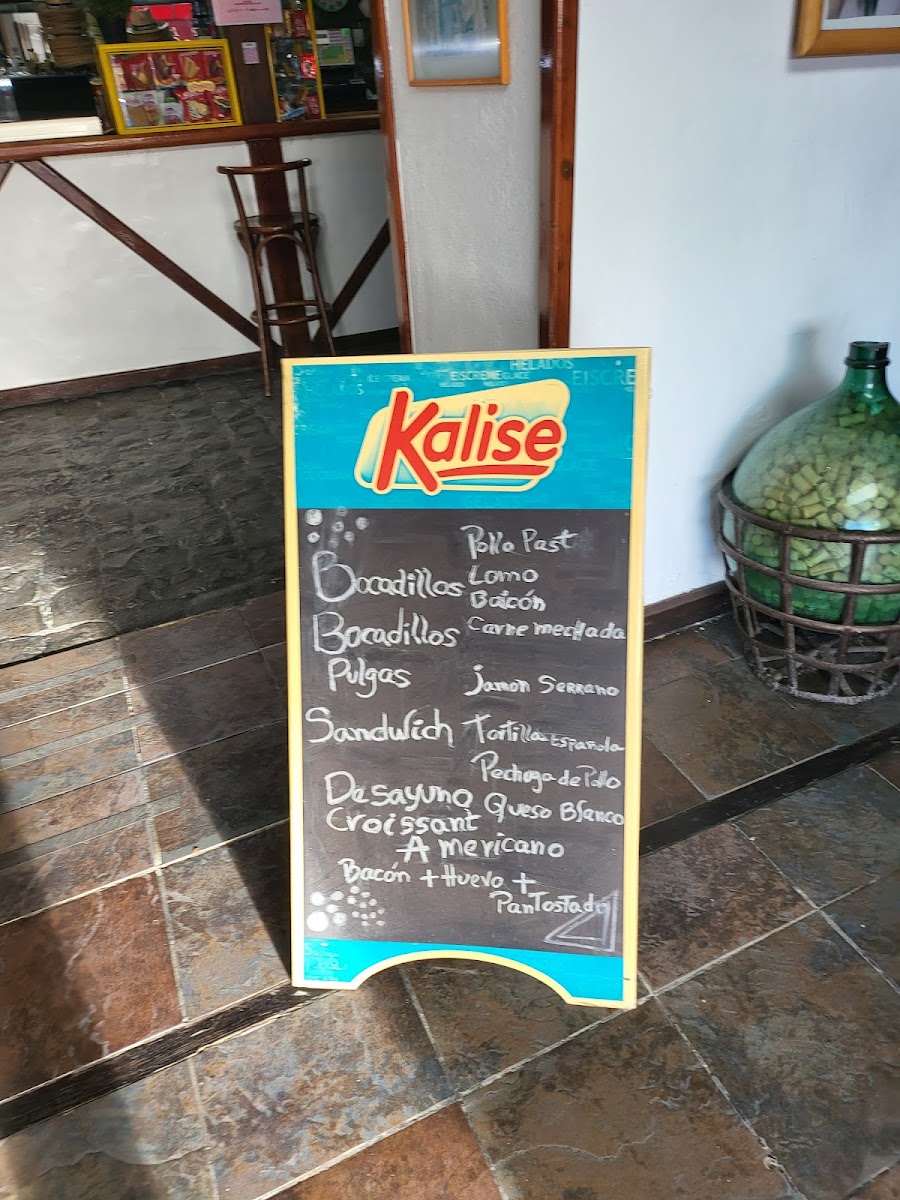 HELADOS
ICE CREAM EISCREME GLACE EISCREME
HELADOS
Kalise
Pollo Past
Bocadillos Lomo
Baicón
Bocadillos Carne mechada
Pulgas Jamon Serrano
Sandwich Tortilla Española
Pechuga de Pollo
Desayuno Queso Blanco
Croissant
Americano
Bacón + Huevo +
Pan Tostado